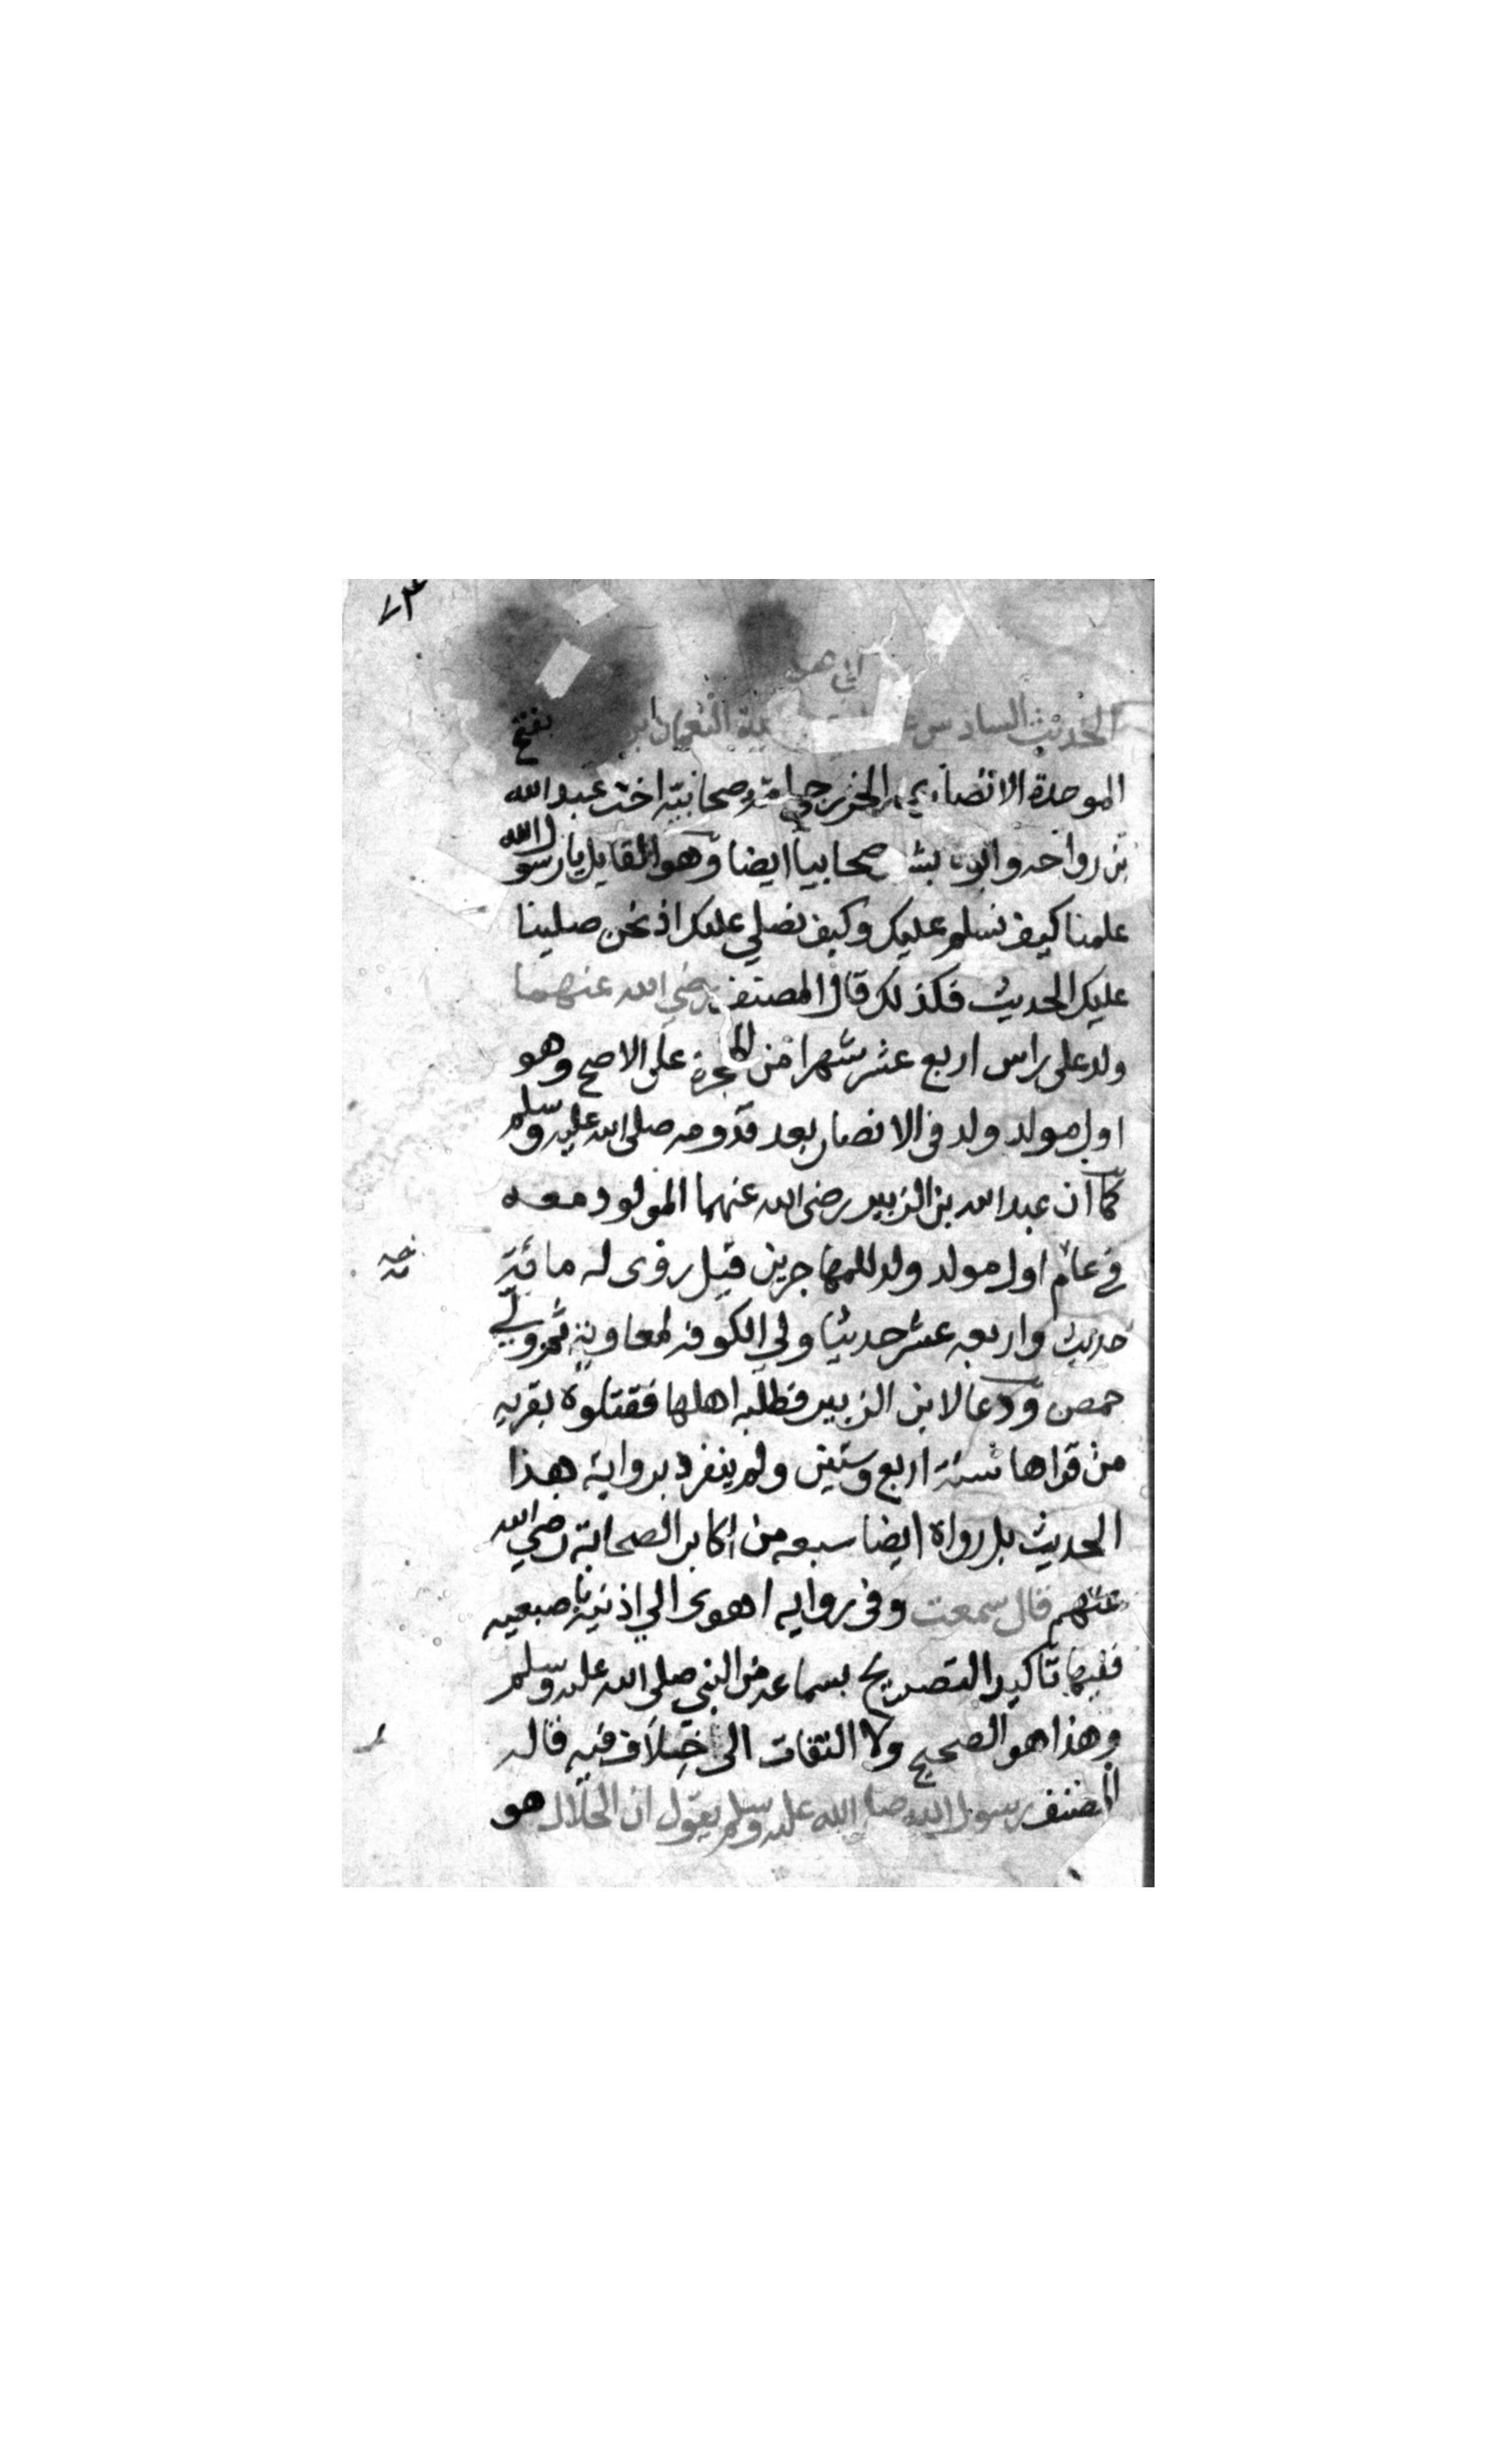 ٧٣
الحديث السادس النعمان ابن بفتح
الموحدة الانصاري الخزرجي امه صحابية اخت عبد الله
بن رواحه وابوه صحابيا ايضا وهو القايل يا رسول الله
علمنا كيف نسلم عليك وكيف نصلي عليك اذ نحن صلينا
عليك الحديث فكذلك قال المصنف رضي الله عنهما
ولد على راس اربع عشر شهرا من الهجرة على الاصح وهو
اول مولد ولد في الانصار بعد قدومه صلى الله عليه وسلم
كما ان عبد الله بن الزبير رضى الله عنهما المولود معه
في عام اول مولد ولد للمهاجرين قيل روى له مائة
حديث واربعه عشر حديثا ولي الكوفه لمعاوية ثم ولي
حمص ودعا لابن الزبير فطلبه اهلها فقتلوه بقريه
من قراها سنة اربع وستين ولم ينفرد برواية هذا
الحديث بل رواه ايضا سبعه من اكابر الصحابة رضي الله
عنهم قال سمعت وفى روايه اهوى الي اذنيه باصبعيه
ففيها تاكيد التصريح بسماعه من النبي صلى الله عليه وسلم
وهذا هو الصحيح ولا التفات الى خلاف فيه قاله
المصنف رسول الله صلى الله عليه وسلم يقول ان الحلال هو